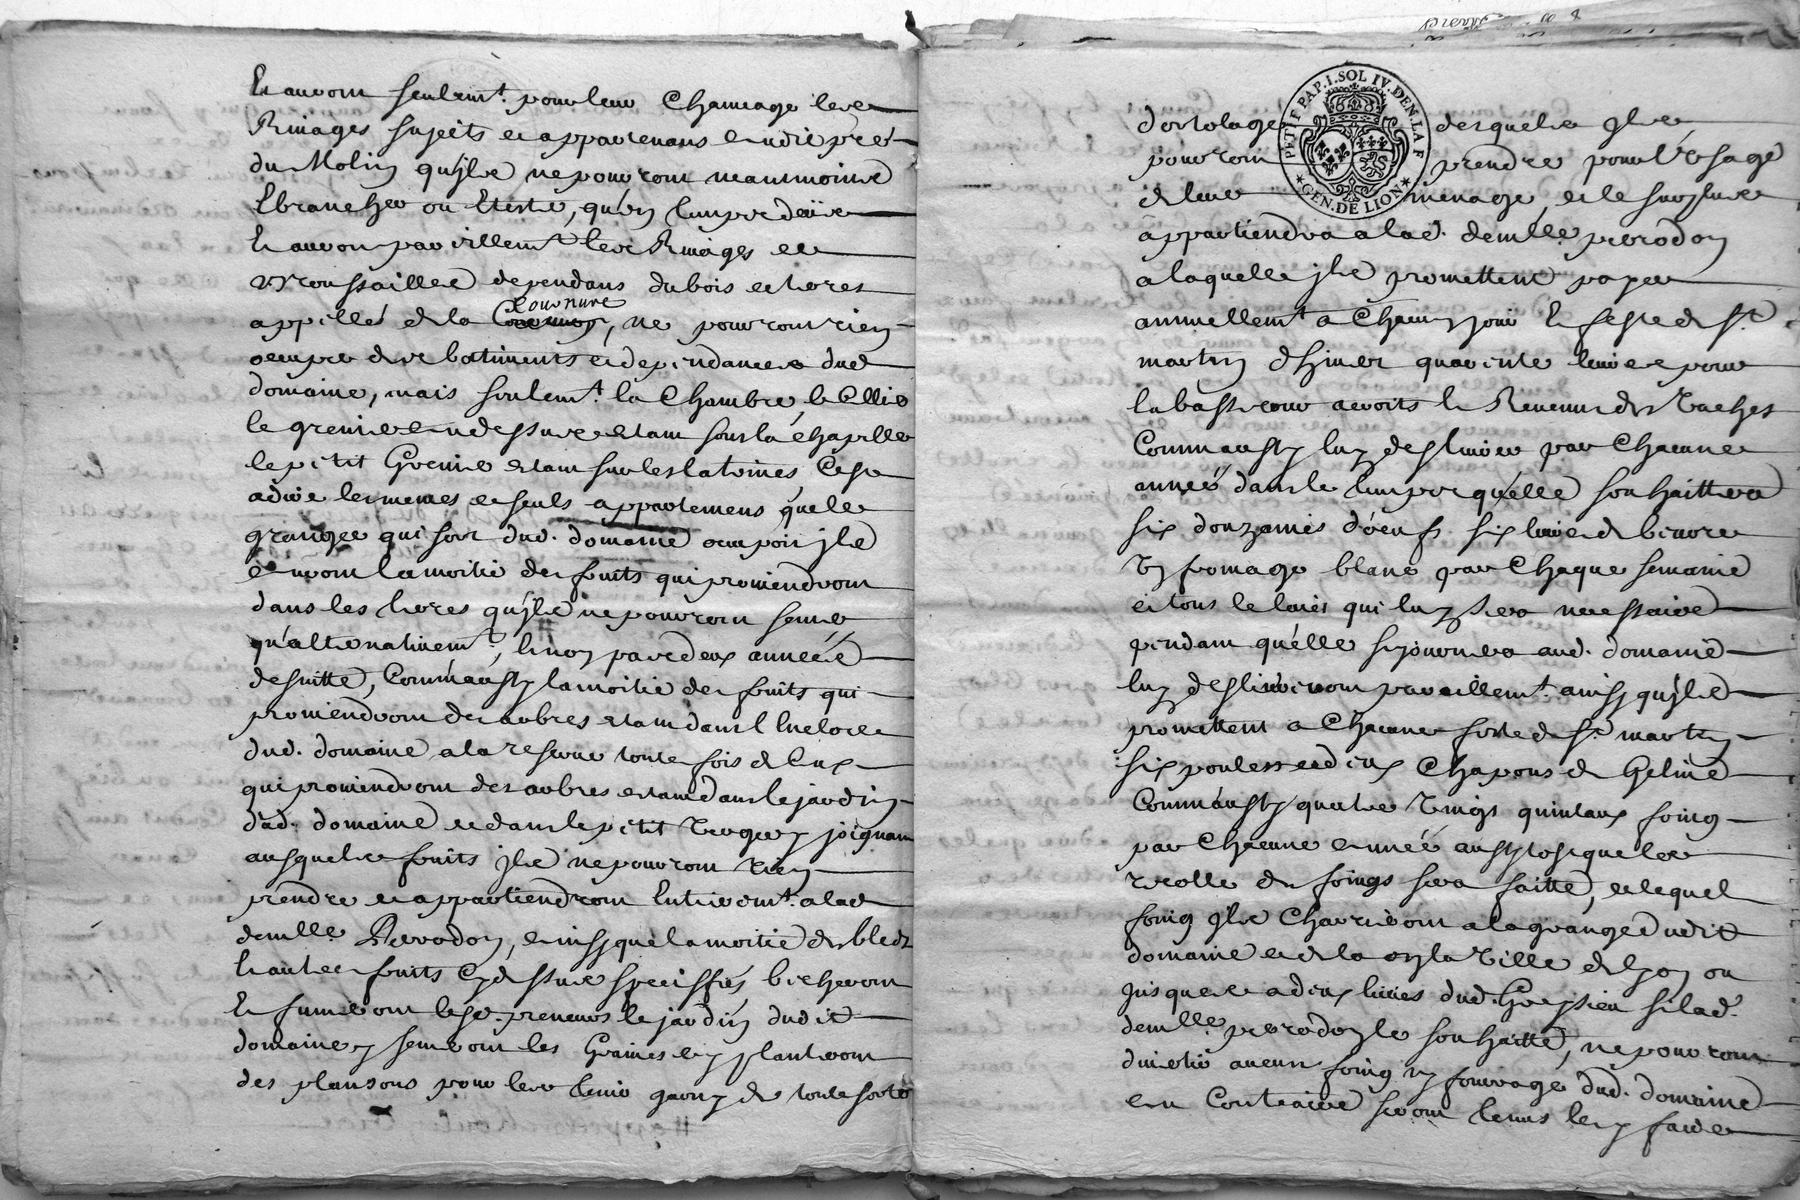 Et auront seulemt. pour leur Chaufage les
Ramages sujets et appartenans audit pré
du Molin qu'jls ne pouvront neantmoins
Ebrancher ou Eteste, qu'en temps de
Et auront pareillemt. les Ramages et
Broussailles dependans du bois et terres
appellés de la tournure, ne pouvront rien
occuper des batiments et dependances dud
domaine, mais seulemt. la Chambre, le Cellier
le grenier au dessus estant sous la chapelle
le petit Grenier estant sur les latrines, C'est
a dire les memes et seuls appartemens que les
grangers qui sont dud. domaine occupoient jls
auront la moitié des fruits qui proviendront
dans les terres qu'jls ne pouvront semer
qu'alternativemt, de deux années
de suitte, Comm'aussy la moitié des fruits qui
proviendront des arbres estant dans l'Enclos
dud. domaine a la reserve toute fois de ceux
qui proviendront des arbres estant dans le jardin
dud. domaine et dans le petit Verger y joignant
ausquels fruits jls ne pouvront rien
prendre et appartiendront Entieremt. a lad
demlle. Perrodon, ainsy que la moitié des bleds
Et autres fruits Cy dessus speciffiés becheront
Et fumeront lesd. preneurs le jardin dudit
domaine y semeront les Graines et y planteront
des plansons pour le garny de toute sorte
d'ortolage desquels jls
pouvront prendre pour l'Vsage
de leur menage, et le surplus
appartiendra a lad. demlle. perrodon
a laquelle jls promettent payer
annuellemt. a Chacun jour Et feste de St.
martin d'hiver quarante livres pour
la basse cour avoits le Revenu des Vaches
Comm'aussy luy deslivrer par Chacune
année dans le temps qu'elle souhaittera
six douzaines d'oeufs six livres de beurre
Vn fromage blanc par Chaque semaine
et tous le laict qui luy sera necessaire
pendant qu'elle sejournera aud. domaine
luy deslivreront pareillemt. ainsy qu'jls
promettent a Chacune feste de St. martin
six poulets et deux Chapons de Geline
Comm'aussy quatre Vingt quintaux foing
par Chacune année aussytost que la
recolte des foings sera faitte, et lequel
foing jls Charrieront a la grange dudit
domaine et de la en la Ville de Lyon ou
jusques a deux lieües dud. si lad.
demlle. perrodon le souhaitte, ne pouvront
divertir aucun foing ny fourrage dud. domaine
au Contraire seront tenus les y faire
PETIT PAP. 1. SOL IV. DEN. LA F
GEN. DE LION